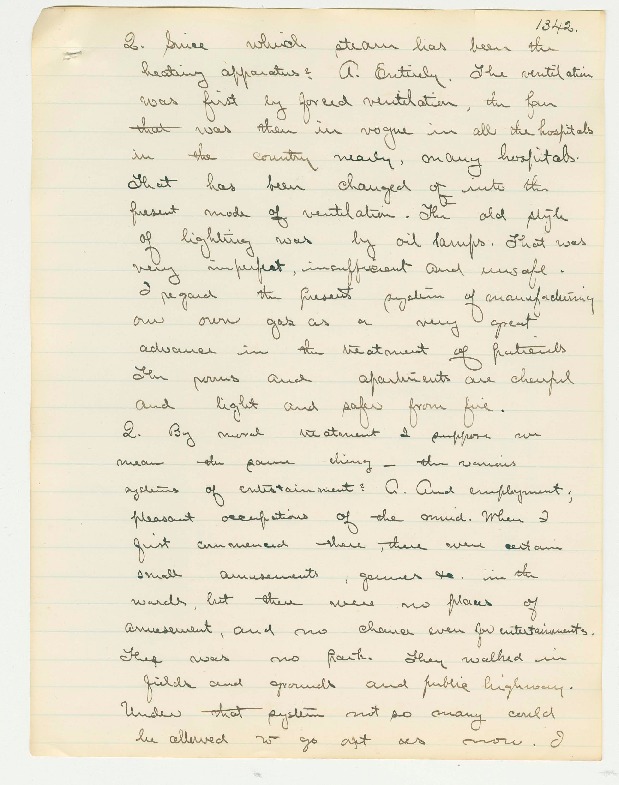 1342.
Q. Since which steam has been the
heating apparatus? A. Entirely. The ventilation
was first by forced ventilation, the fan
that was then in vogue in all the hospitals
in the country nearly, many hospitals.
That has been changed of into the
present mode of ventilation. The old style
of lighting was by oil lamps. That was
very imperfect, insufficient and unsafe.
I regard the present system of manufacturing
our own gas as a very great
advance in the treatment of patients
The rooms and apartments are cheerful
and light and safer from fire.
Q. By moral treatment I suppose we
mean the same thing - the various
systems of entertainment? A. And employment;
pleasant occupations of the mind. When I
first commenced there, there were certain
small amusements, games &c. in the
wards, but there were no places of
amusement, and no chance even for entertainments.
There was no park. They walked in
fields and grounds and public highway.
Under that system not so many could
be allowed to go out as now. I